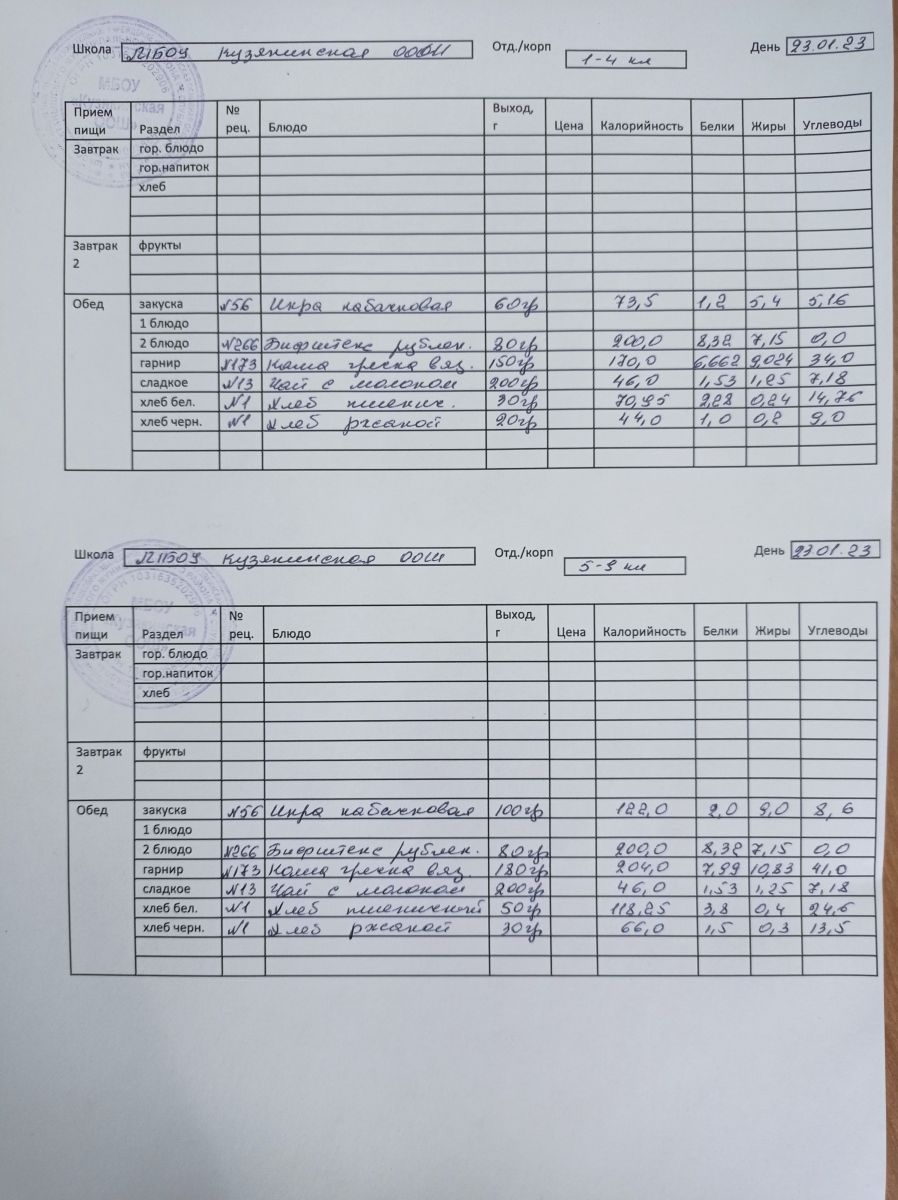 Школа МБОУ Кузякинская ООШ Отд./корп 1-4 кл День 23.01.23
Прием пищи Раздел № рец. Блюдо Выход, г Цена Калорийность Белки Жиры Углеводы
Завтрак гор. блюдо
гор.напиток
хлеб
Завтрак 2 фрукты
Обед закуска №56 Икра кабачковая 60гр 73,5 1,2 5,4 5,16
1 блюдо
2 блюдо №266 Бифштекс рублен. 80гр 200,0 8,32 7,15 0,0
гарнир №173 Каша гречка вяз. 150гр 170,0 6,662 9,024 34,0
сладкое №13 Чай с молоком 200гр 46,0 1,53 1,25 7,18
хлеб бел. №1 Хлеб пшенич. 30гр 70,95 2,28 0,24 14,76
хлеб черн. №1 Хлеб ржаной 20гр 44,0 1,0 0,2 9,0
МБОУ
«Кузякинская
ООШ»
Школа МБОУ Кузякинская ООШ Отд./корп 5-9 кл День 23.01.23
Прием пищи Раздел № рец. Блюдо Выход, г Цена Калорийность Белки Жиры Углеводы
Завтрак гор. блюдо
гор.напиток
хлеб
Завтрак 2 фрукты
Обед закуска №56 Икра кабачковая 100гр 122,0 2,0 9,0 8,6
1 блюдо
2 блюдо №266 Бифштекс рублен. 80гр 200,0 8,32 7,15 0,0
гарнир №173 Каша гречка вяз. 180гр 204,0 7,99 10,83 41,0
сладкое №13 Чай с молоком 200гр 46,0 1,53 1,25 7,18
хлеб бел. №1 Хлеб пшеничный 50гр 118,25 3,8 0,4 24,6
хлеб черн. №1 Хлеб ржаной 30гр 66,0 1,5 0,3 13,5
МБОУ
«Кузякинская
ООШ»